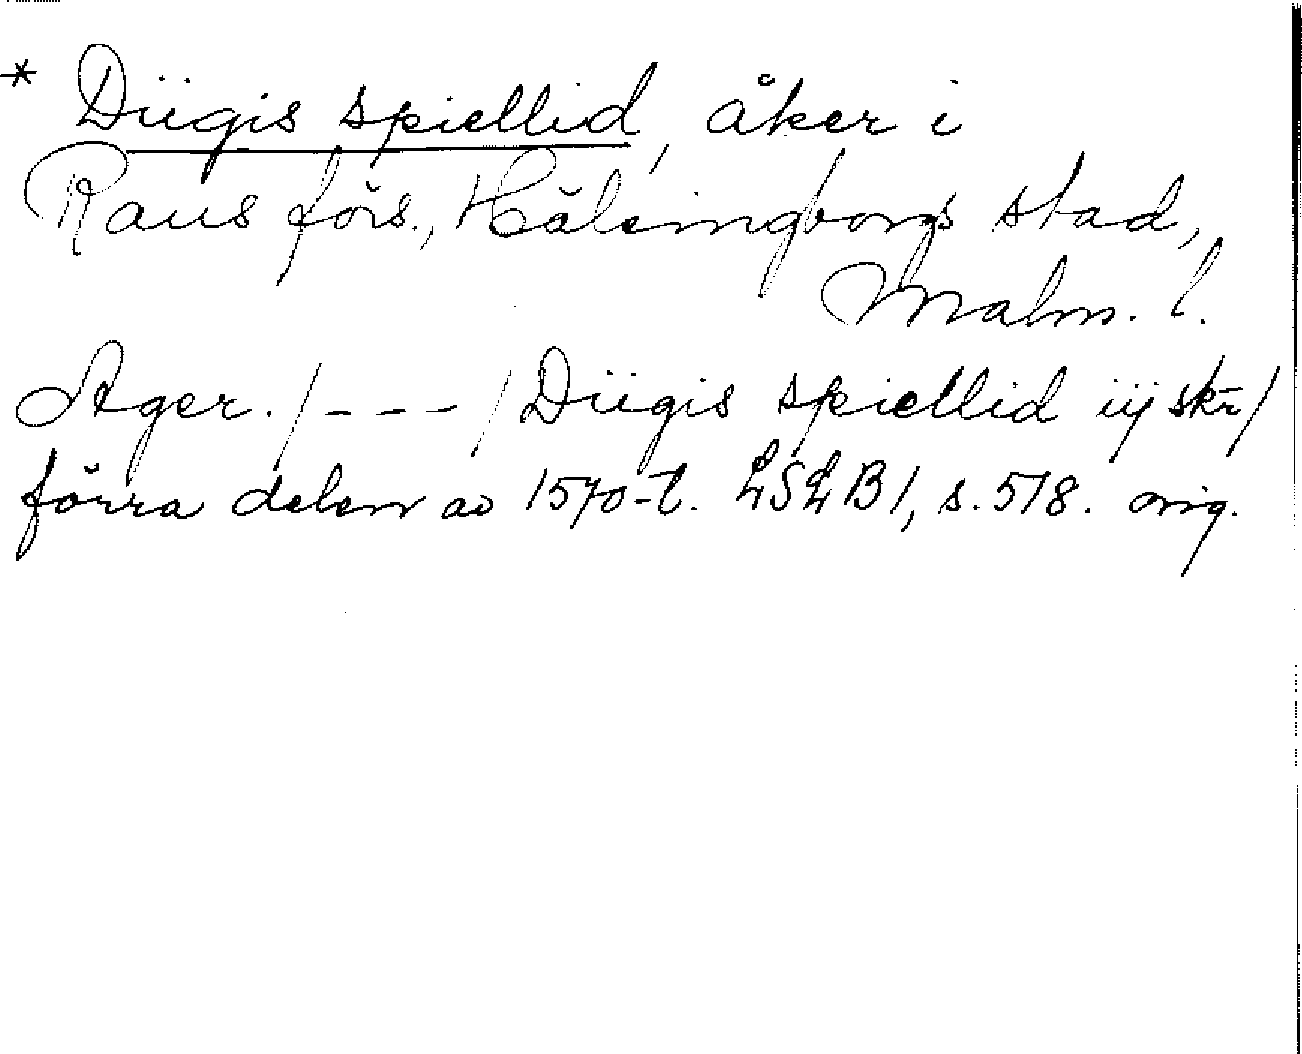 * Diigis spiellid, åker i
Raus förs., Hälsingborgs stad,
Malm. l.
Ager. /---/ Diigis spiellid iij skr/
förra delen av 1570-t. LSLB1, s. 518. orig.